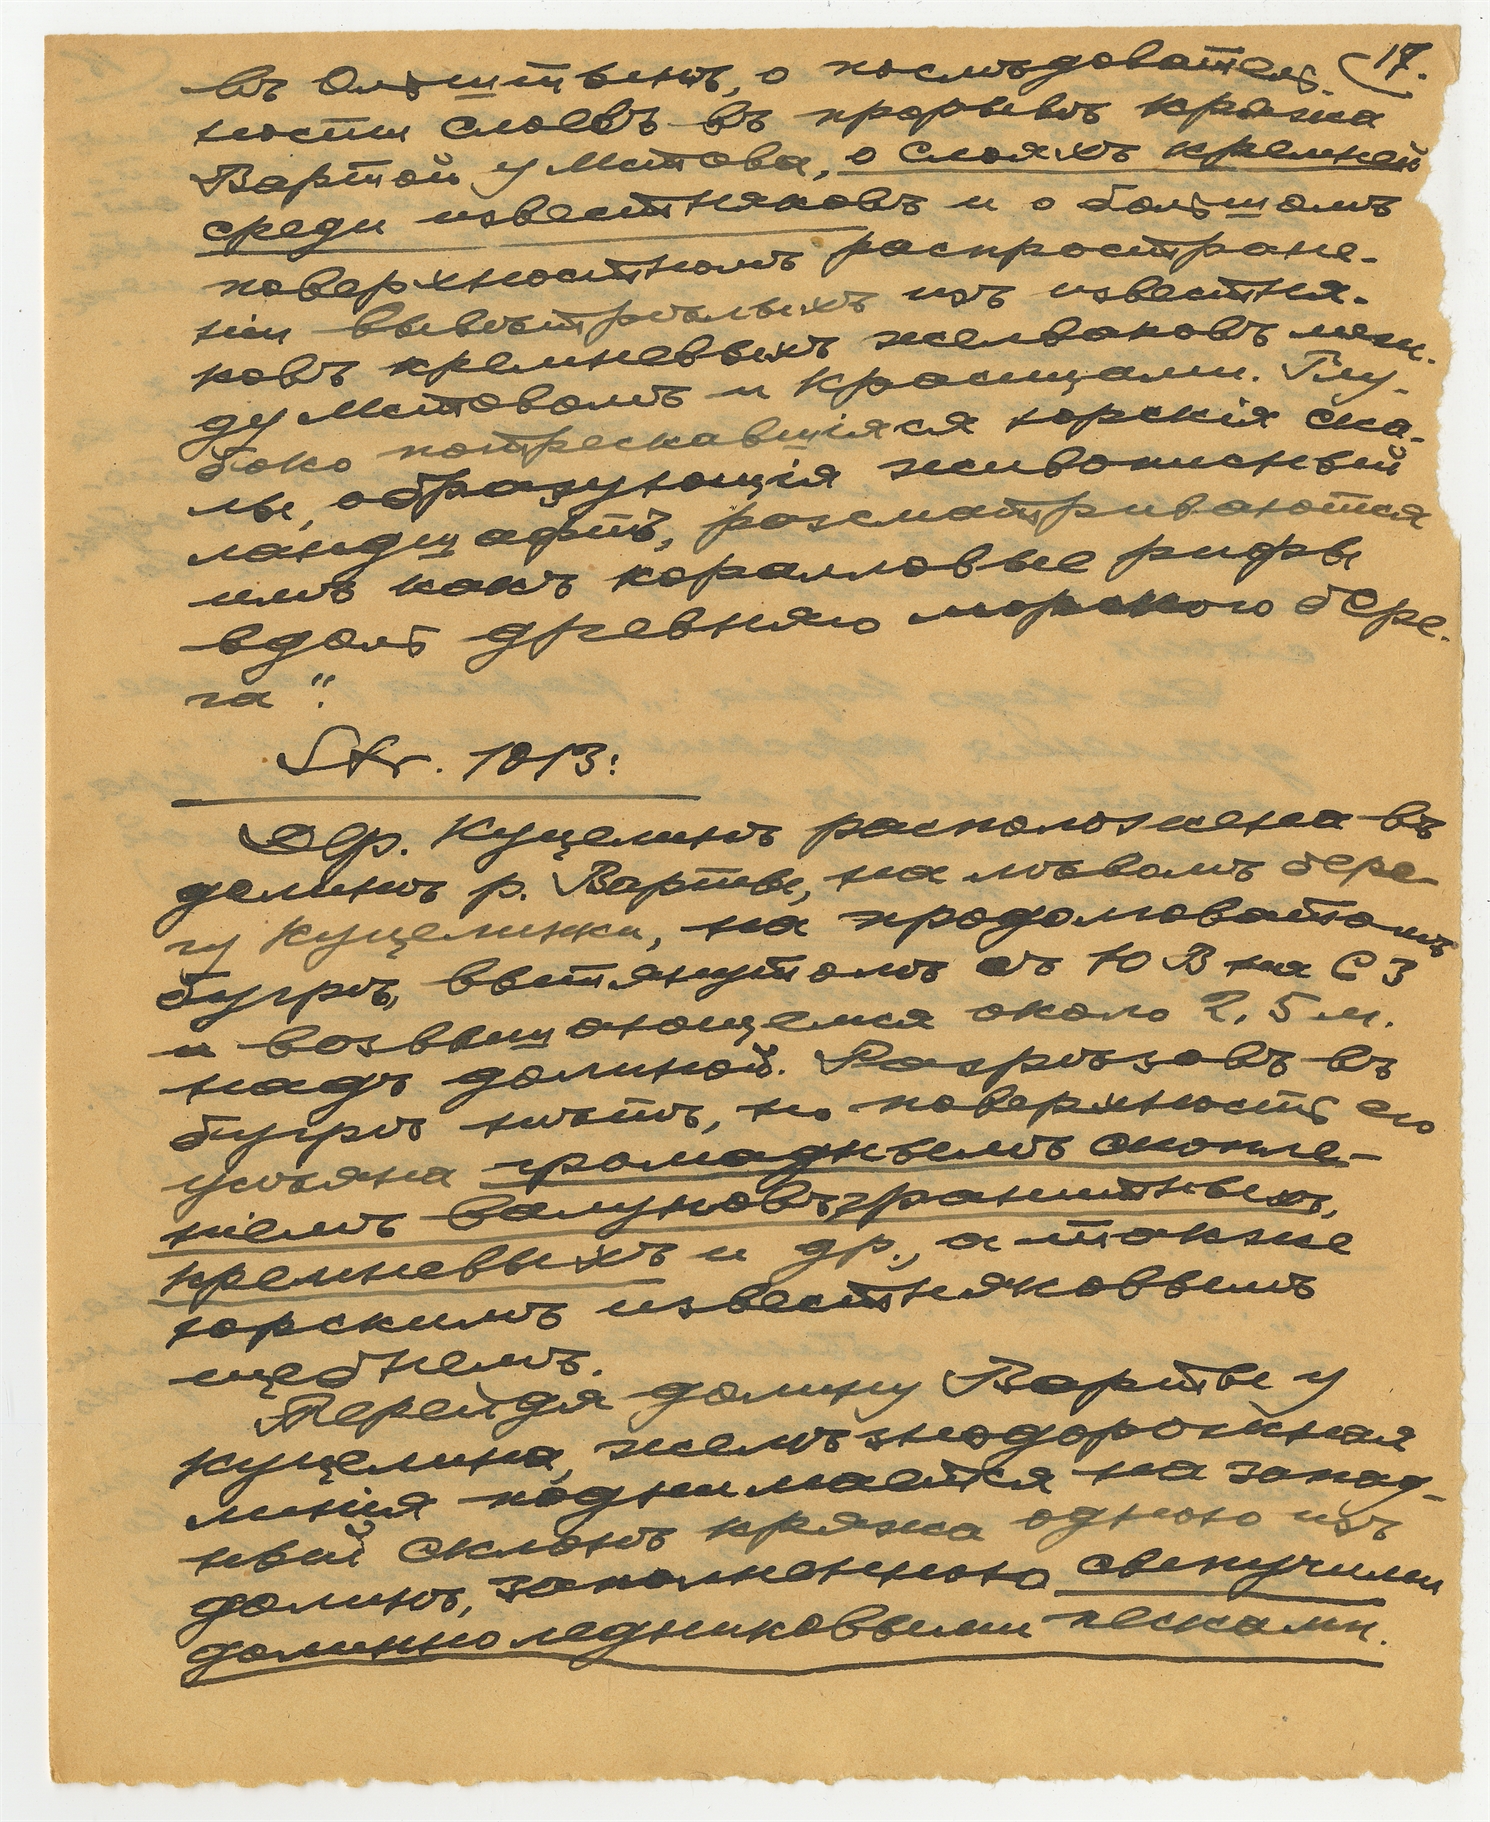 17.
въ Ольштынѣ, о послѣдователь-
ности слоевъ въ прорывѣ кряжа
Вартой у Мстова, о слояхъ кремней
среди известняковъ и о большомъ
поверхностномъ распростране-
нiи вывѣтрѣлыхъ изъ известня-
ковъ кремневыхъ желваковъ меж-
ду Мстовомъ и Красицами. Глу-
боко потрескавшiяся юрскiя ска-
лы, образующiя живописный
ландшафтъ, разсматриваются
имъ какъ коралловые рифы
вдоль древняго морского бере-
га".
Str. 1013:
Дер. Куцелинъ расположена въ
долинѣ р. Варты, на лѣвомъ бере-
гу Куцелинки, на продолговатомъ
бугрѣ, вытянутомъ съ ЮВ на СЗ
и возвышающемся около 2,5 м.
надъ долиной. Разрѣзовъ въ
бугрѣ нѣтъ, но поверхность его
усѣяна громаднымъ скопле-
нiемъ валуновъ гранитныхъ,
кремневыхъ и др., а также
юрскимъ известняковымъ
щебнемъ.
Перейдя долину Варты у
Куцелина, желѣзнодорожная
линiя поднимается на запад-
ный склонъ кряжа одною изъ
долинъ, заполненною сыпучими
долинноледниковыми песками.